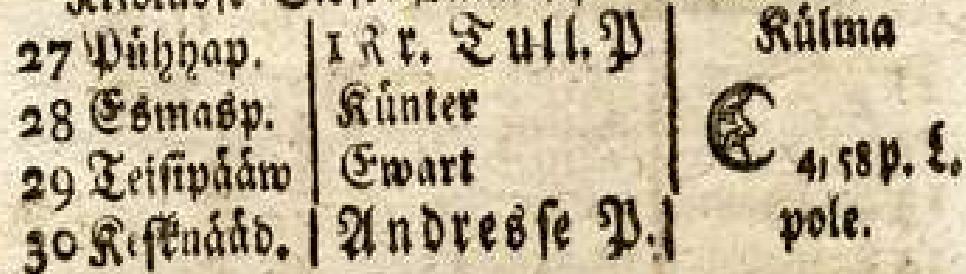 27 Pühhap. 1 Kr. Tull. P Külma
28 Esmasp. Künter
29 Teisipääw Ewart 4, 58 p. L.
30 Kesknääd. Andresse P. pole.